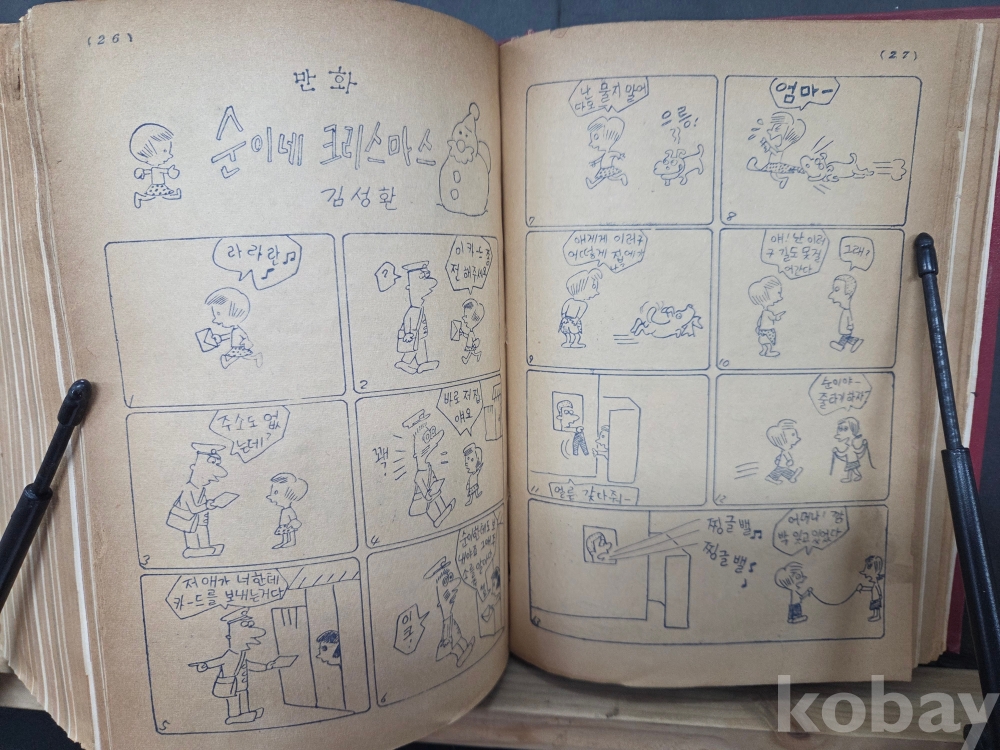 (26)
만 화
순이네 크리스마스
김성환
라라란♪
1
?
이 카-드 좀
전해주세요
2
주소도 없
는데?
3
바로 저 집
얘요
꽥!
4
저 애가 너한테
카-드를 보내는거다
5
이크!
6
(27)
난 물지 말어
다오
으릉!
7
엄마-
8
얘게게 이러구
어떻게 집에가
9
얘! 난 이러
구 길도 못걸
어간다
그래?
10
얼른 갖다줘-
11
순이야-
줄타기하자
12
찡글 밸♪
찡글 밸♪
♪
어머나! 깜
빡 잊고 있었다
13
kobay